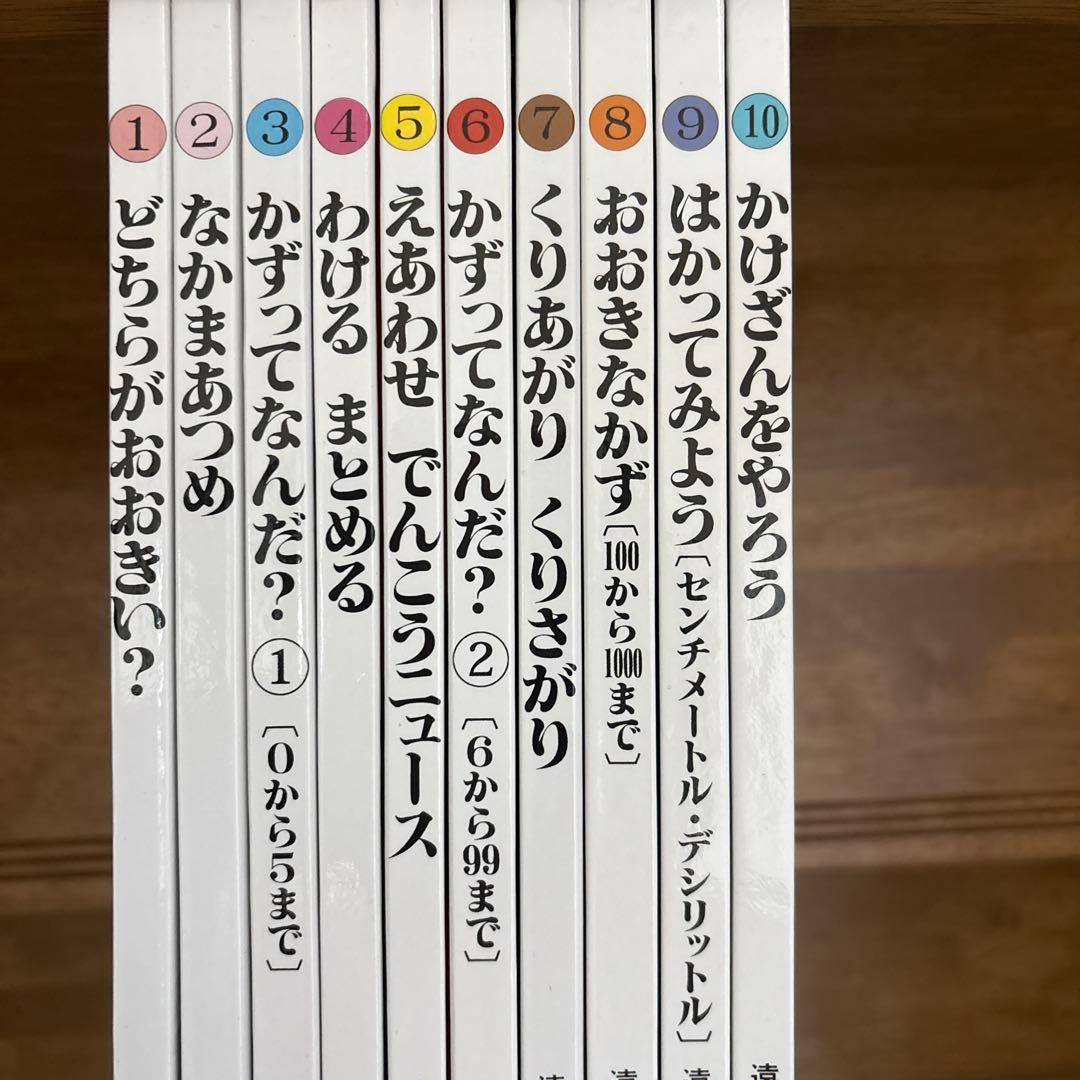 1 どちらがおおきい?
2 なかまあつめ
3 かずってなんだ? ① 〔0から5まで〕
4 わける まとめる
5 えあわせ でんこうニュース
6 かずってなんだ? ② 〔6から99まで〕
7 くりあがり くりさがり
8 おおきなかず〔100から1000まで〕
9 はかってみよう〔センチメートル・デシリットル〕
10 かけざんをやろう